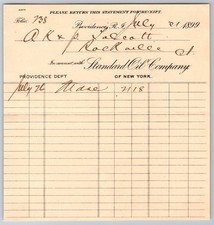 PLEASE RETURN THIS STATEMENT
Folio 738
Providence, R.I. July 21 1899
A K & Talcott
Rockville Ct.
In account with Standard Oil Company
PROVIDENCE DEPT OF NEW YORK.
July 7th Mdse 2118